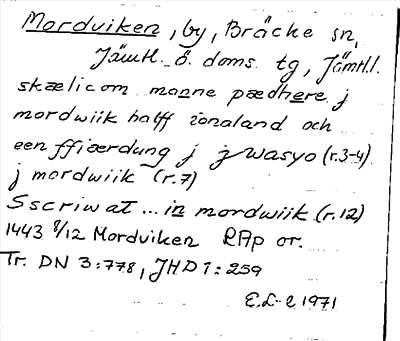 Mordviken, by, Bräcke sn,
Jämtl. ö. doms. tg, Jämtl.l.
skælicom manne pædhere j
mordwiik halff iönaland och
een ffiærdung j j wasyo (r.3-4)
j mordwiik (r.7)
Sscriwat ... in mordwiik (r.12)
1443 8/12 Mordviken RAp or.
Tr. DN 3:778, JHD 1:259
E.L-z 1971